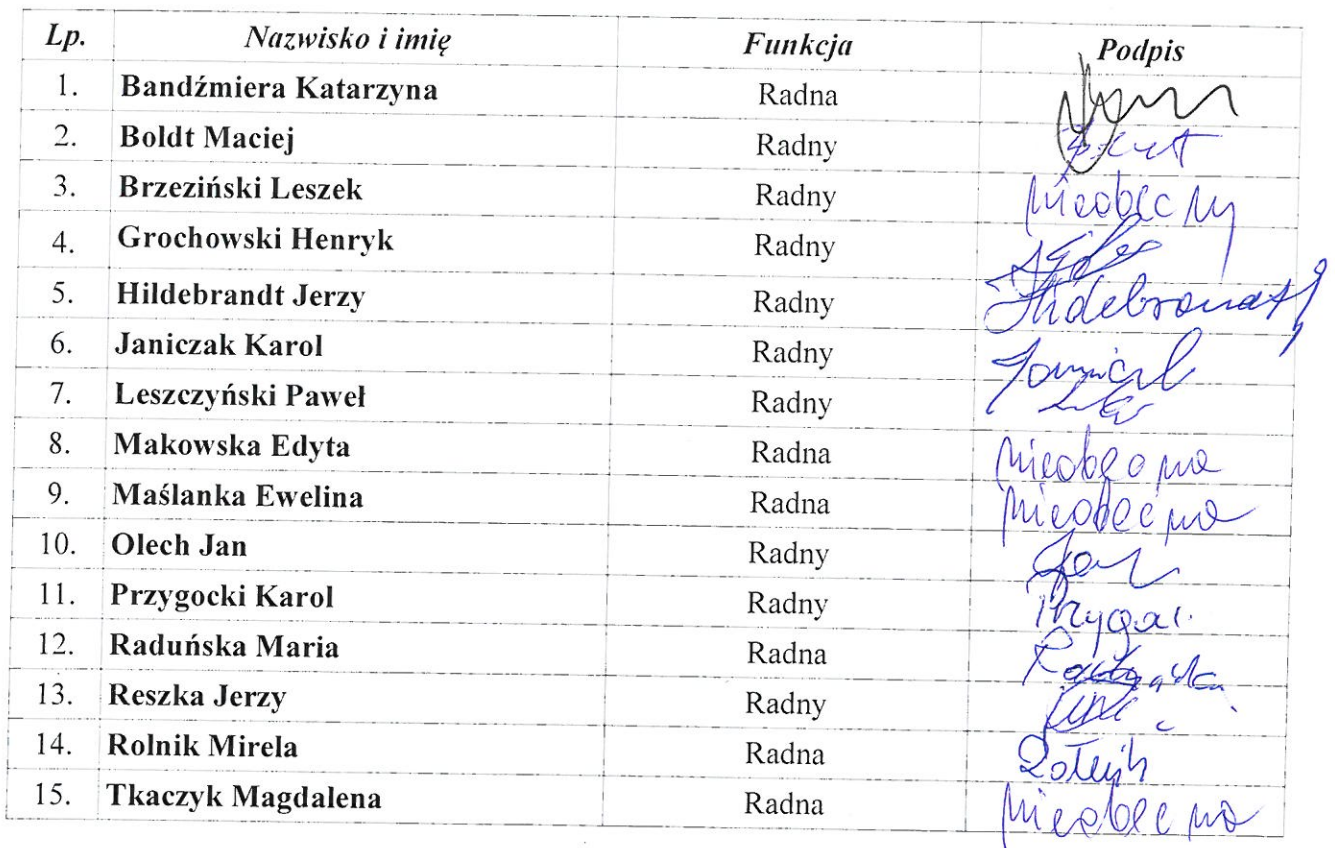 Lp. Nazwisko i imię Funkcja Podpis
1. Bandźmiera Katarzyna Radna
2. Boldt Maciej Radny
3. Brzeziński Leszek Radny nieobecny
4. Grochowski Henryk Radny
5. Hildebrandt Jerzy Radny Hildebrandt J
6. Janiczak Karol Radny
7. Leszczyński Paweł Radny
8. Makowska Edyta Radna nieobecna
9. Maślanka Ewelina Radna nieobecna
10. Olech Jan Radny
11. Przygocki Karol Radny
12. Raduńska Maria Radna Raduńska
13. Reszka Jerzy Radny
14. Rolnik Mirela Radna Rolnik
15. Tkaczyk Magdalena Radna nieobecna